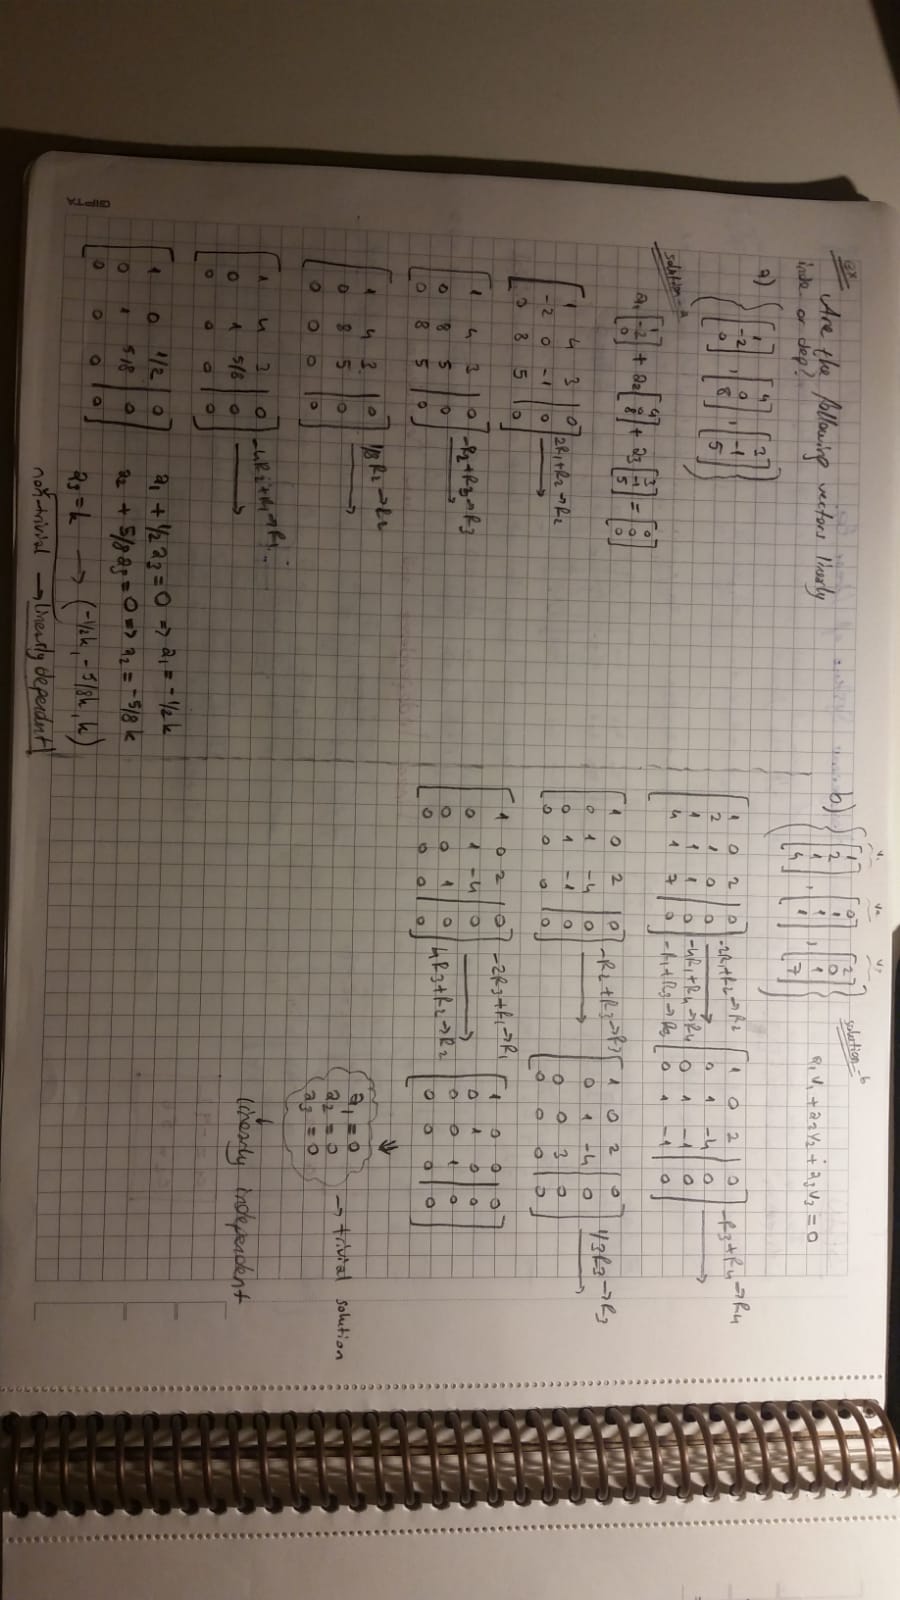 Ex
Are the following vectors linearly
inde. or dep?
a) { [1 -2 0], [4 0 8], [3 -1 5] }
solution-a
a1 [1 -2 0] + a2 [4 0 8] + a3 [3 -1 5] = [0 0 0]
[ 1 4 3 | 0
-2 0 -1 | 0
0 8 5 | 0 ] 2R1+R2→R2
[ 1 4 3 | 0
0 8 5 | 0
0 8 5 | 0 ] -R2+R3→R3
[ 1 4 3 | 0
0 8 5 | 0
0 0 0 | 0 ] 1/8 R2→R2
[ 1 4 3 | 0
0 1 5/8 | 0
0 0 0 | 0 ] -4R2+R1→R1
[ 1 0 1/2 | 0
0 1 5/8 | 0
0 0 0 | 0 ]
a1 + 1/2 a3 = 0 ⇒ a1 = -1/2 k
a2 + 5/8 a3 = 0 ⇒ a2 = -5/8 k
a3 = k → (-1/2k, -5/8k, k)
non-trivial → linearly dependent
v1 v2 v3
b) { [1 2 1 4], [0 1 1 1], [2 0 1 7] }
solution-b
a1v1 + a2v2 + a3v3 = 0
[ 1 0 2 | 0
2 1 0 | 0
1 1 1 | 0
4 1 7 | 0 ] -2R1+R2→R2
-4R1+R4→R4
-R1+R3→R3
[ 1 0 2 | 0
0 1 -4 | 0
0 1 -1 | 0
0 1 -1 | 0 ] -R3+R4→R4
[ 1 0 2 | 0
0 1 -4 | 0
0 1 -1 | 0
0 0 0 | 0 ] -R2+R3→R3
[ 1 0 2 | 0
0 1 -4 | 0
0 0 3 | 0
0 0 0 | 0 ] 1/3R3→R3
[ 1 0 2 | 0
0 1 -4 | 0
0 0 1 | 0
0 0 0 | 0 ] -2R3+R1→R1
4R3+R2→R2
[ 1 0 0 | 0
0 1 0 | 0
0 0 1 | 0
0 0 0 | 0 ]
a1 = 0
a2 = 0
a3 = 0
→ trivial solution
linearly independent
GIPTA